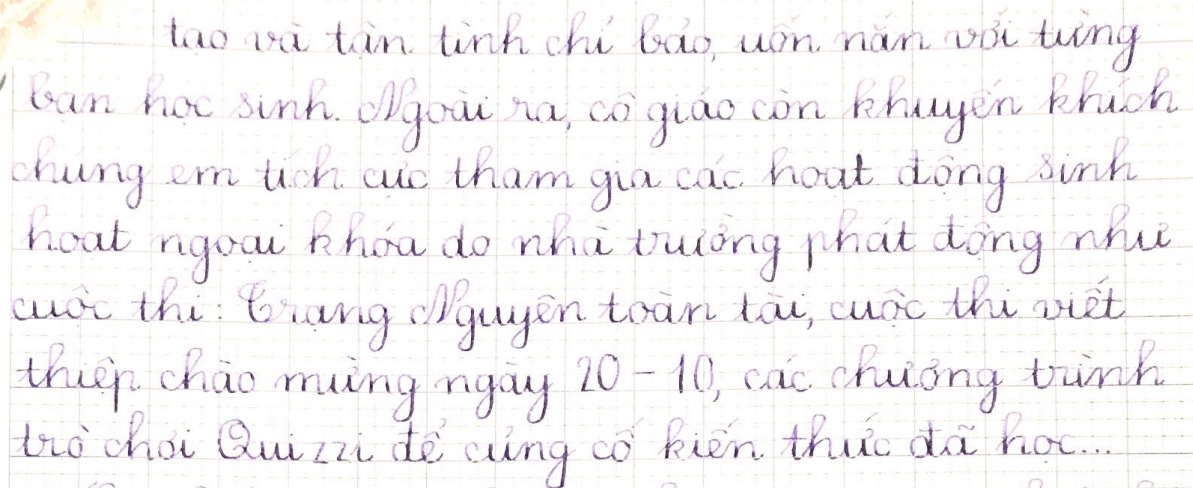 tạo và tận tình chỉ bảo, uốn nắn với từng
bạn học sinh. Ngoài ra, cô giáo còn khuyến khích
chúng em tích cực tham gia các hoạt động sinh
hoạt ngoại khóa do nhà trường phát động như
cuộc thi: Trạng Nguyên toàn tài, cuộc thi viết
thiệp chào mừng ngày 20 - 10, các chương trình
trò chơi Quizzi để củng cố kiến thức đã học...